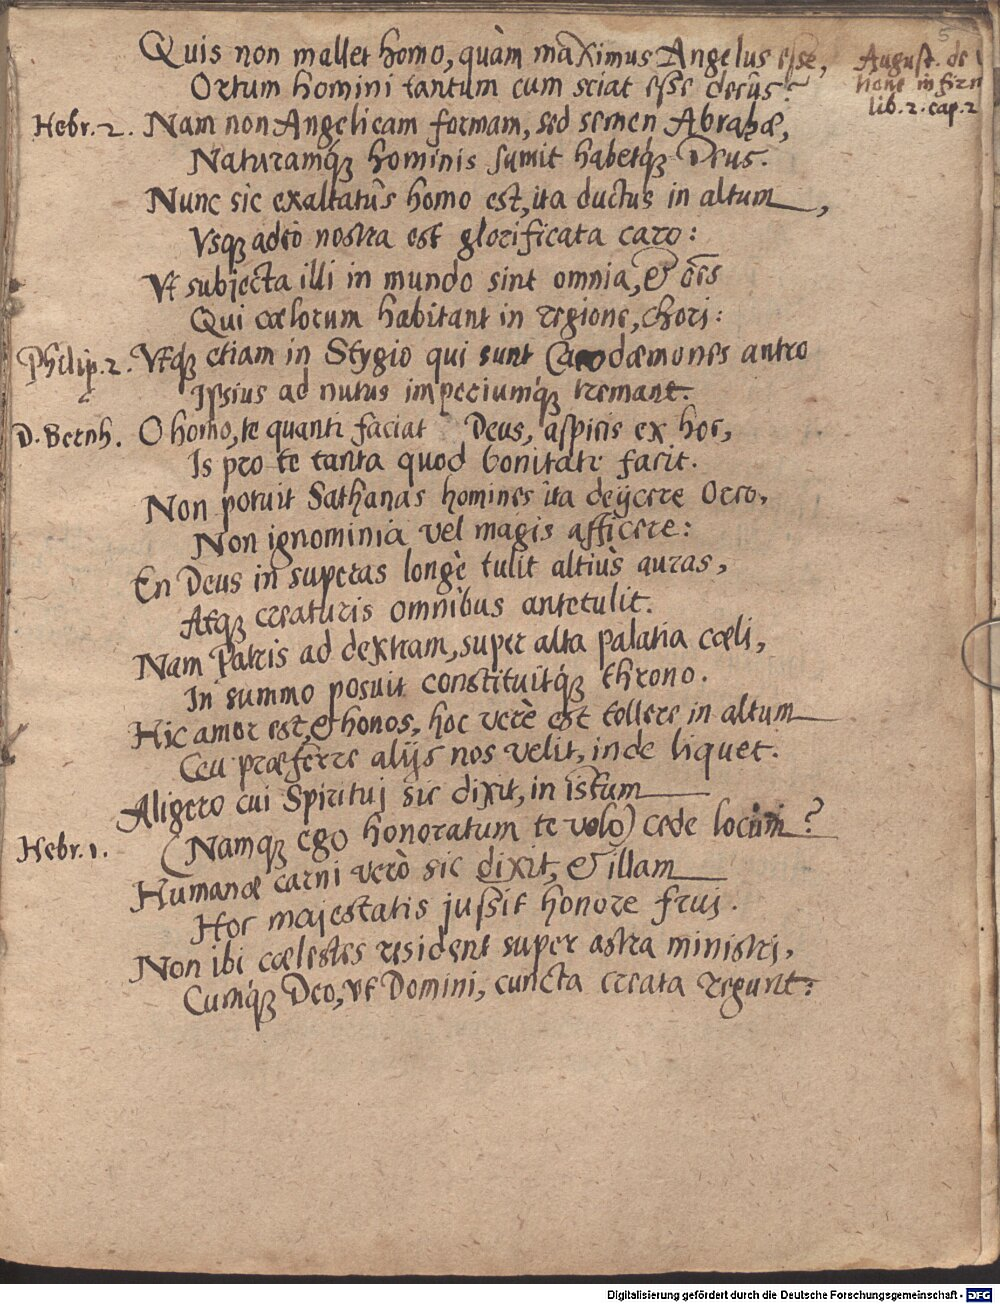 5
Quis non mallet homo, quàm maximus Angelus esse,
Ortum homini tantum cum sciat esse decus?
August. de
lib. 2. cap. 2
Hebr. 2. Nam non Angelicam formam, sed semen Abrahæ,
Naturamq́ꝫ hominis sumit habetq́ꝫ Deus.
Nunc sic exaltatûs homo est, ita ductus in altum,
Vsqꝫ adeò nostra est glorificata caro:
Vt subjecta illi in mundo sint omnia, & oẽs
Qui cælorum habitant in regione, chori:
Philip. 2. Vtqꝫ etiam in Stygio qui sunt Cacodæmones antro
Ipsius ad nutus imperiumq́ꝫ tremant.
D. Bernh. O homo, te quanti faciat Deus, aspicis ex hoc,
Is pro te tanta quod bonitate facit.
Non potuit Sathanas homines ita deijcere Orco,
Non ignominia vel magis afficere:
En Deus in superas longè tulit altiùs auras,
Atqꝫ creaturis omnibus antetulit.
Nam Patris ad dextram, super alta palatia cæli,
In summo posuit constituitq́ꝫ throno.
Hic amor est, & honos, hoc verè est tollere in altum
Ceu præferre alijs nos velit, inde liquet.
Aligero cui Spirituj sic dixit, in istum
Hebr. 1. (Namqꝫ ego honoratum te volo) cede locum?
Humanæ carni verò sic dixit, & illam
Hoc majestatis jussit honore fruj.
Non ibi cælestes resident super astra ministrj,
Cumq́ꝫ Deo, vt Domini, cuncta creata regunt:
Digitalisierung gefördert durch die Deutsche Forschungsgemeinschaft - DFG